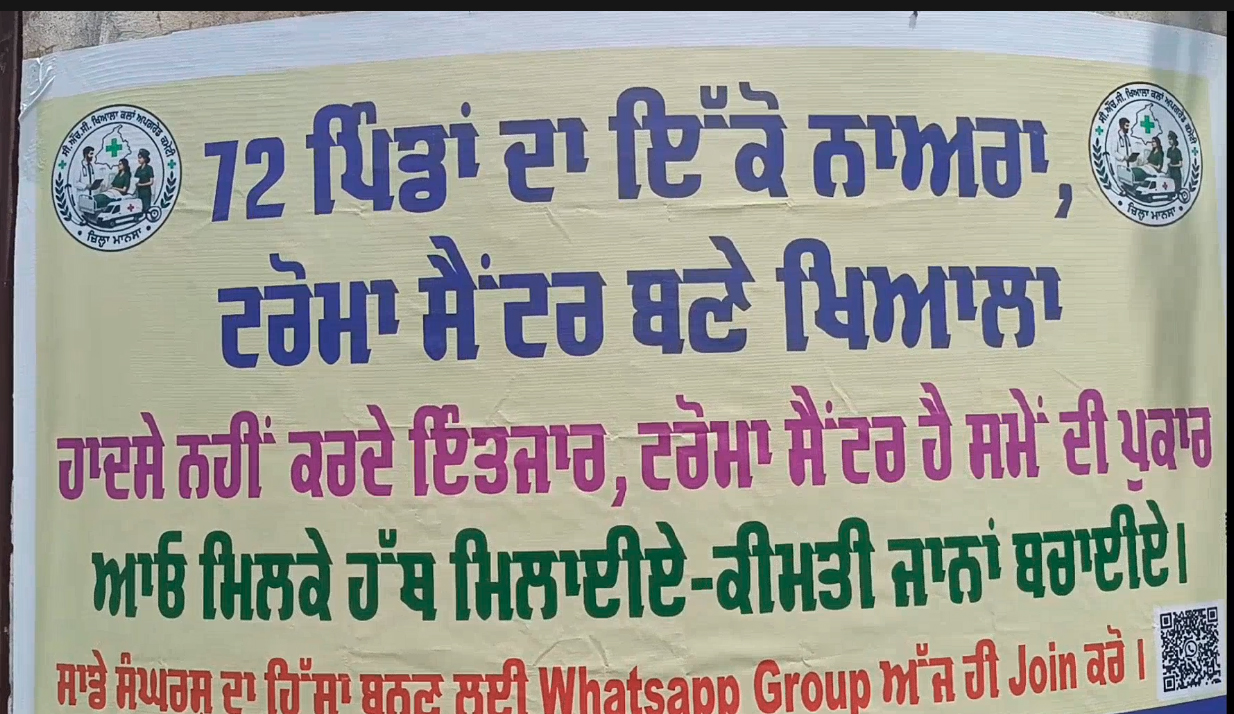 ਸੀ.ਐੱਚ.ਸੀ. ਖਿਆਲਾ ਕਲਾਂ ਅਪਗਰੇਡ ਕਮੇਟੀ
ਜ਼ਿਲ੍ਹਾ ਮਾਨਸਾ
ਸੀ.ਐੱਚ.ਸੀ. ਖਿਆਲਾ ਕਲਾਂ ਅਪਗਰੇਡ ਕਮੇਟੀ
ਜ਼ਿਲ੍ਹਾ ਮਾਨਸਾ
72 ਪਿੰਡਾਂ ਦਾ ਇੱਕੋ ਨਾਅਰਾ,
ਟਰੋਮਾ ਸੈਂਟਰ ਬਣੇ ਖਿਆਲਾ
ਹਾਦਸੇ ਨਹੀਂ ਕਰਦੇ ਇੰਤਜਾਰ, ਟਰੋਮਾ ਸੈਂਟਰ ਹੈ ਸਮੇਂ ਦੀ ਪੁਕਾਰ
ਆਓ ਮਿਲਕੇ ਹੱਥ ਮਿਲਾਈਏ-ਕੀਮਤੀ ਜਾਨਾਂ ਬਚਾਈਏ।
ਸਾਡੇ ਸੰਘਰਸ਼ ਦਾ ਹਿੱਸਾ ਬਨਣ ਲਈ Whatsapp Group ਅੱਜ ਹੀ Join ਕਰੋ।